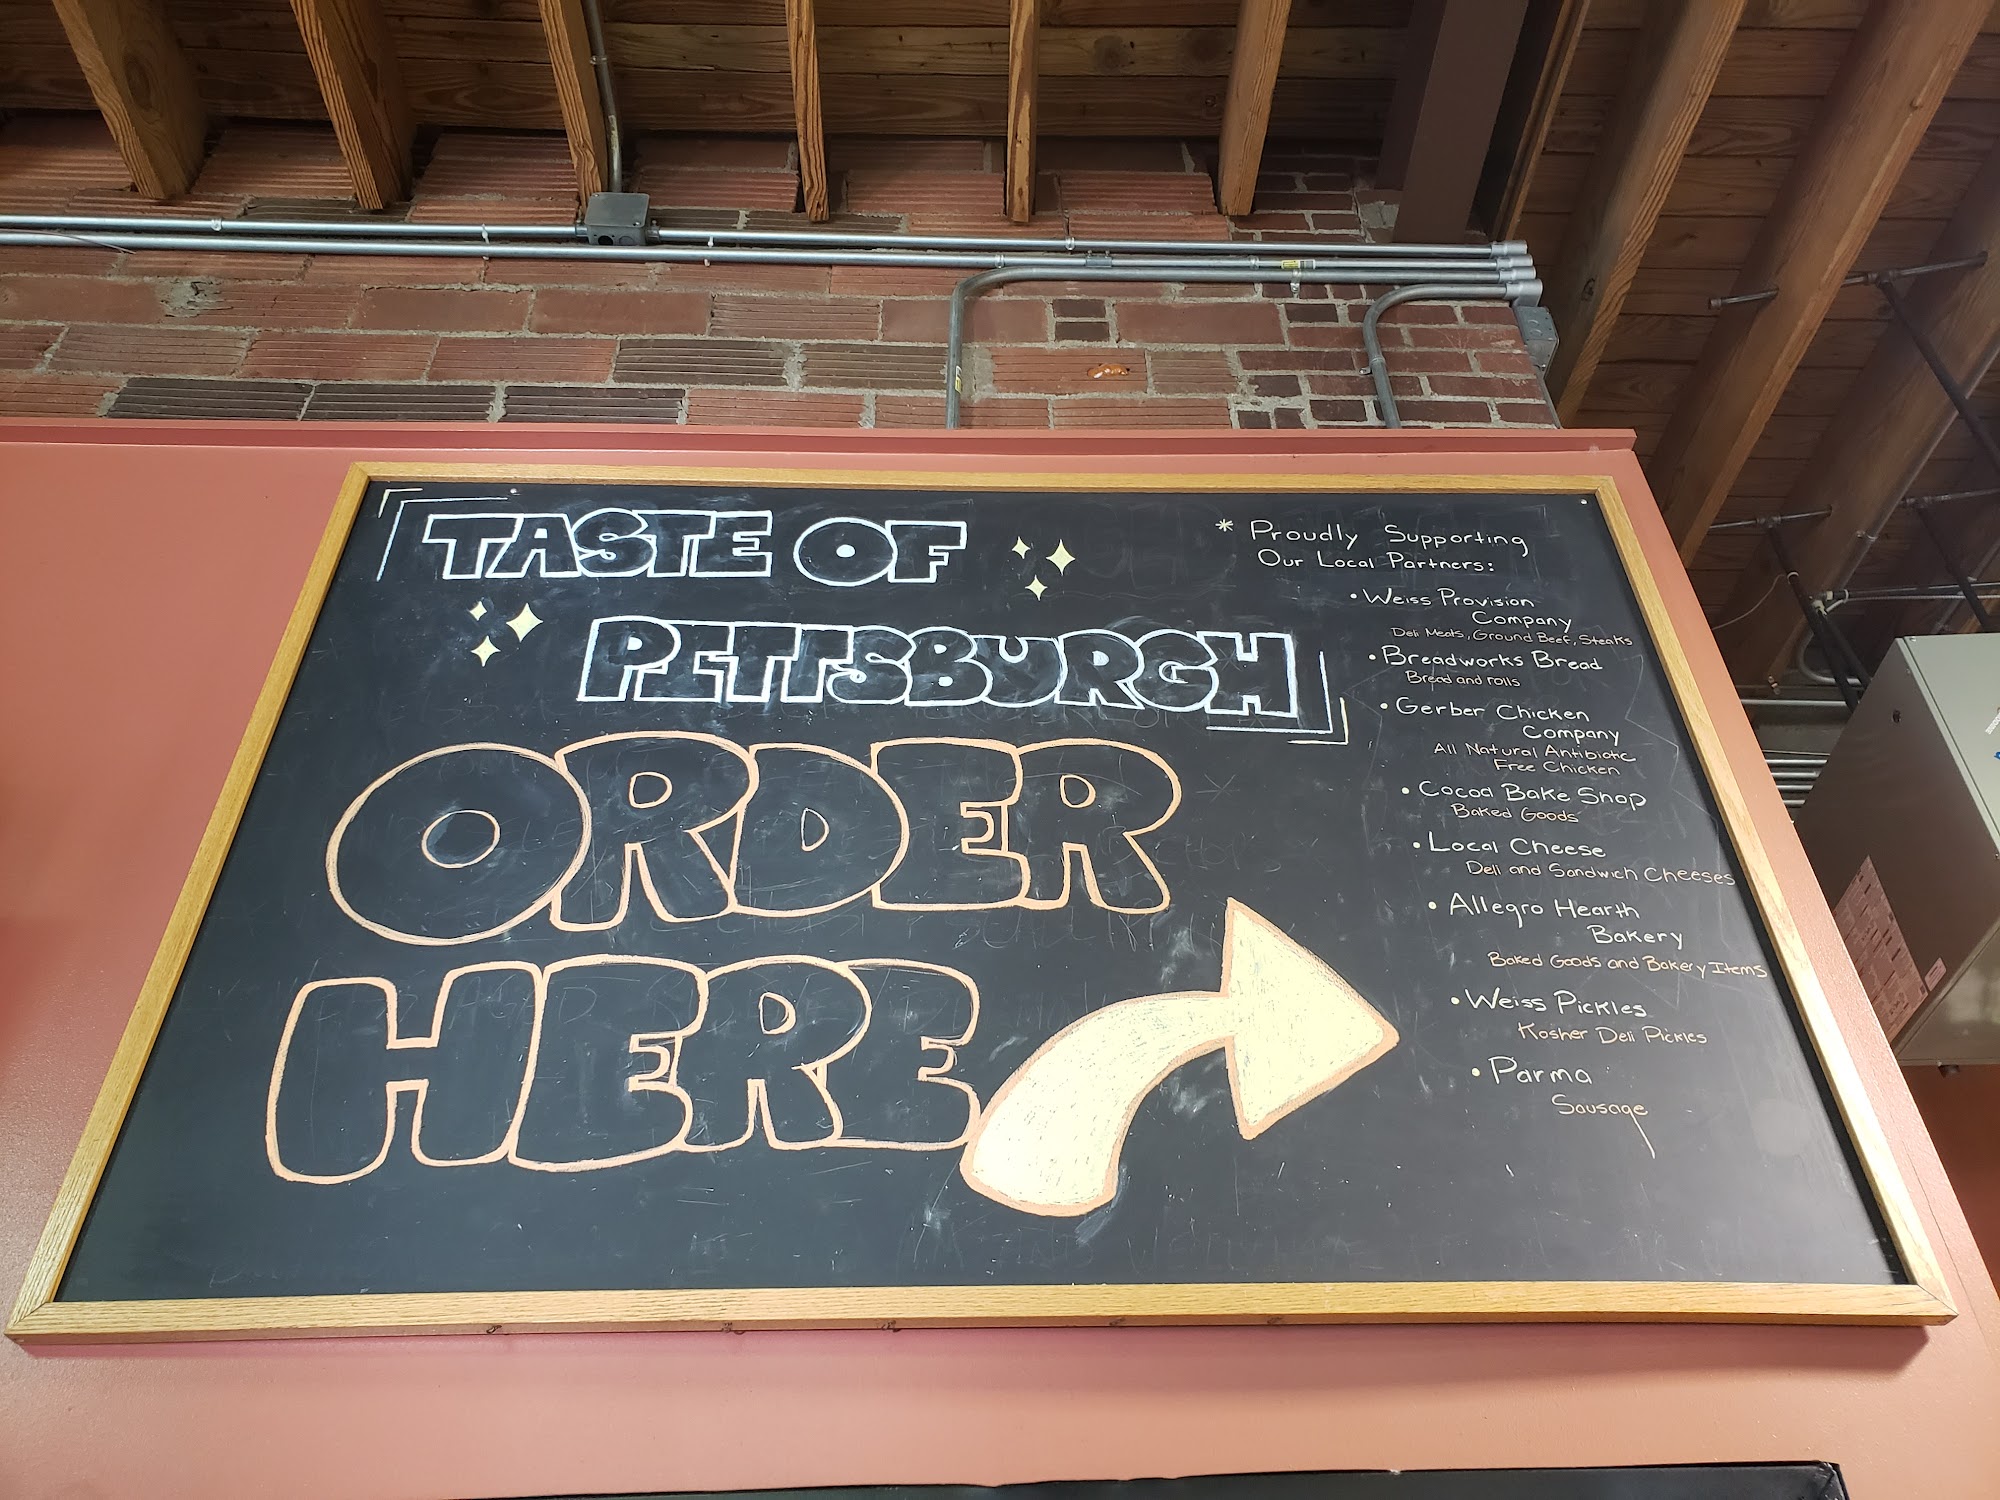 TASTE OF
PITTSBURGH
ORDER
HERE
* Proudly Supporting
Our Local Partners:
• Weiss Provision
Company
Deli Meats, Ground Beef, Steaks
• Breadworks Bread
Bread and rolls
• Gerber Chicken
Company
All Natural Antibiotic
Free Chicken
• Cocoa Bake Shop
Baked Goods
• Local Cheese
Deli and Sandwich Cheeses
• Allegro Hearth
Bakery
Baked Goods and Bakery Items
• Weiss Pickles
Kosher Deli Pickles
• Parma
Sausage